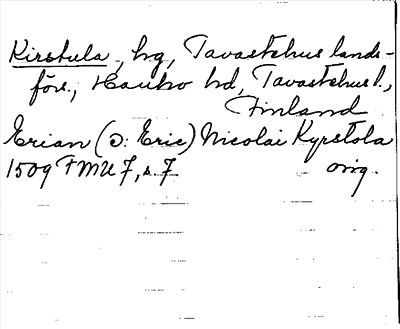 Kirstula, hg, Tavastehus lands-
förs., Hauho hd, Tavastehus l.,
Finland
Erian (ɔ: Eric) Nicolai Kyrstola
1509 FMU 7, s. 7 orig.